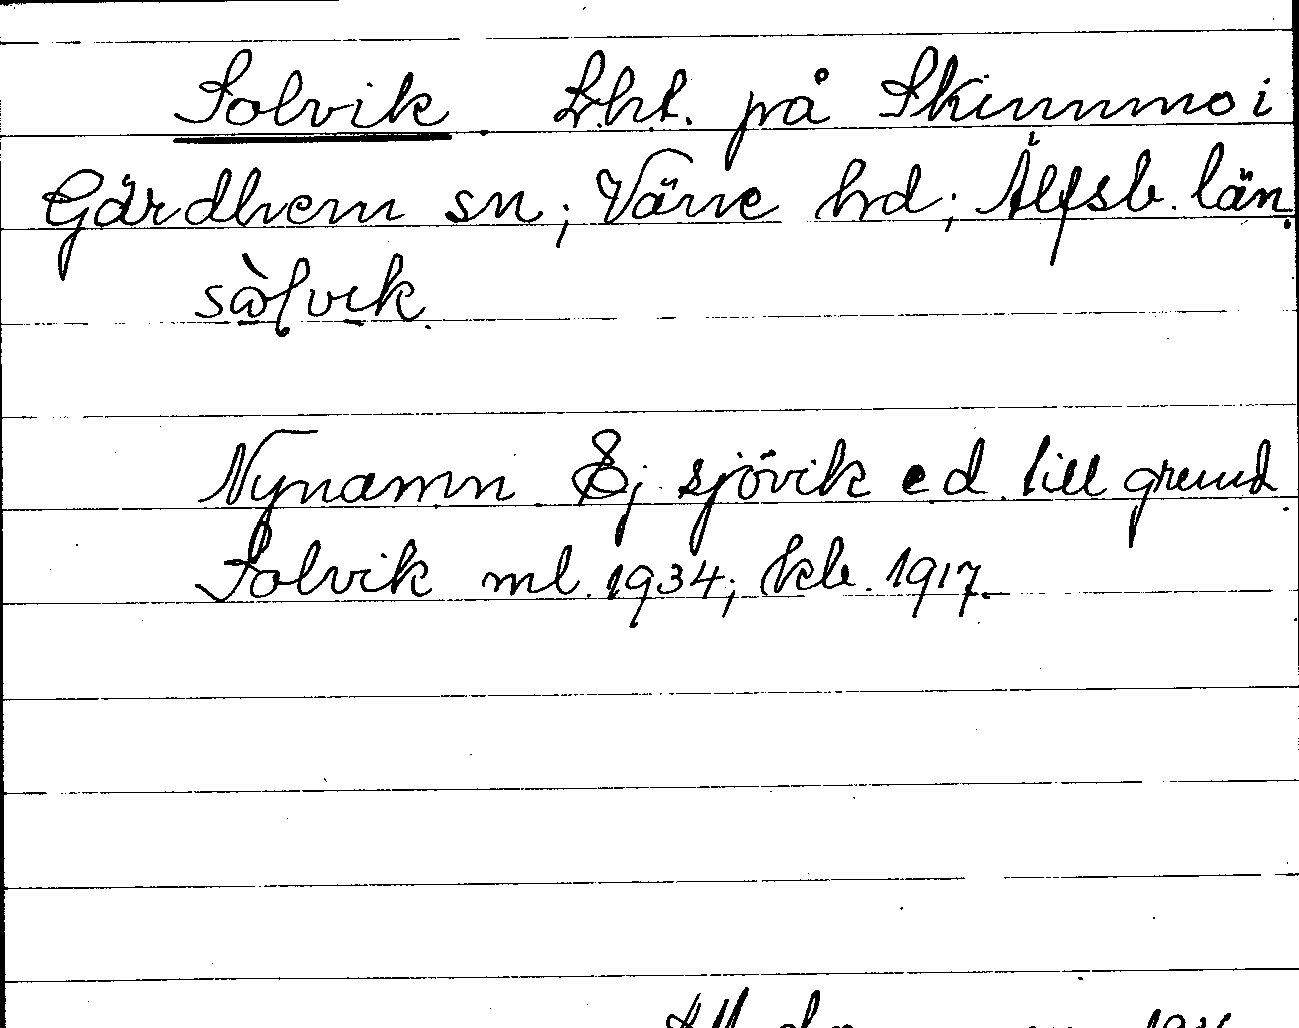 Solvik. Lht. på Skinnmo i
Gärdhem sn; Väne hd; Älfsb. län.
sòlvik.
Nynamn Ej sjövik e d. till grund.
Solvik ml. 1934; kb. 1917.